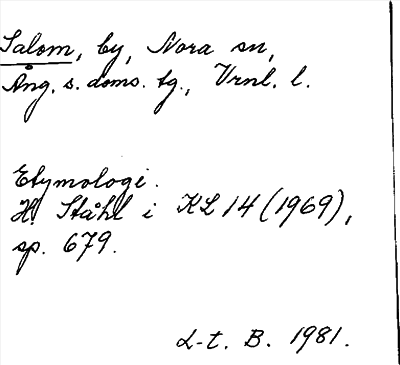 Salom, by, Nora sn,
Ång. s. doms. tg., Vrnl. l.
Etymologi.
H. Ståhl i KL 14 (1969),
sp. 679.
L-t. B. 1981.